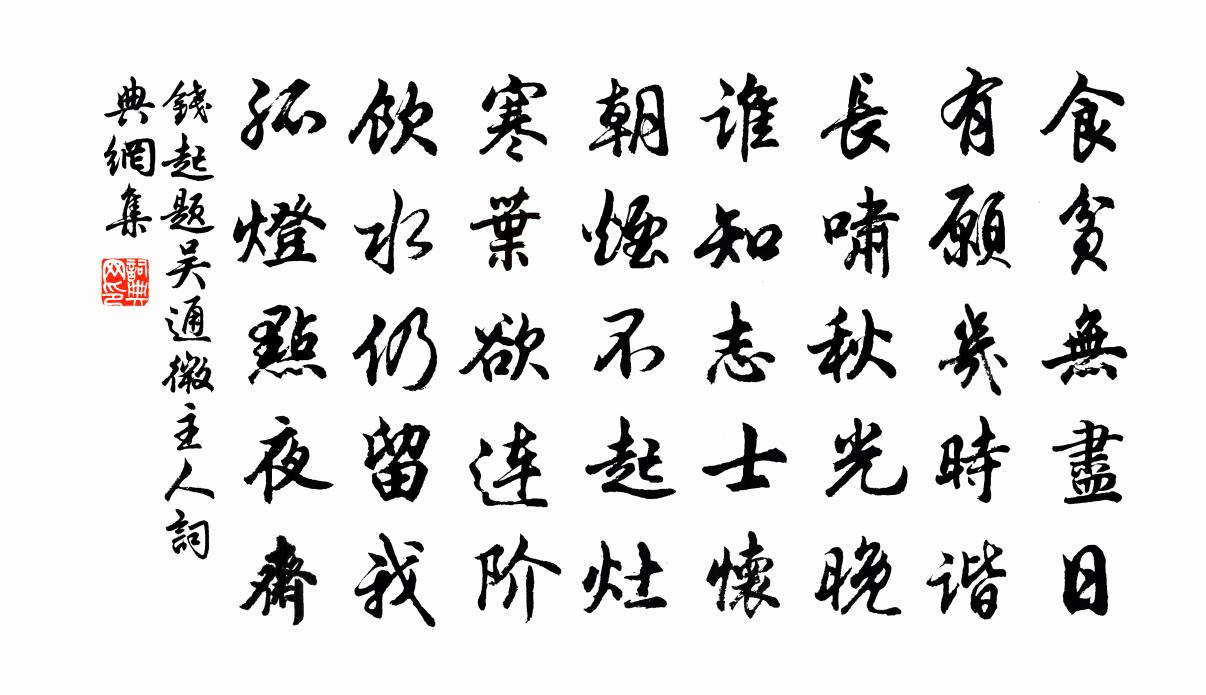 食貧無盡日
有願幾時谐
長嘯秋光晚
谁知志士懷
朝煙不起灶
寒葉欲连阶
飲水仍留我
孤燈點夜齋
錢起题吴通微主人詞
典網集
詞典
网印